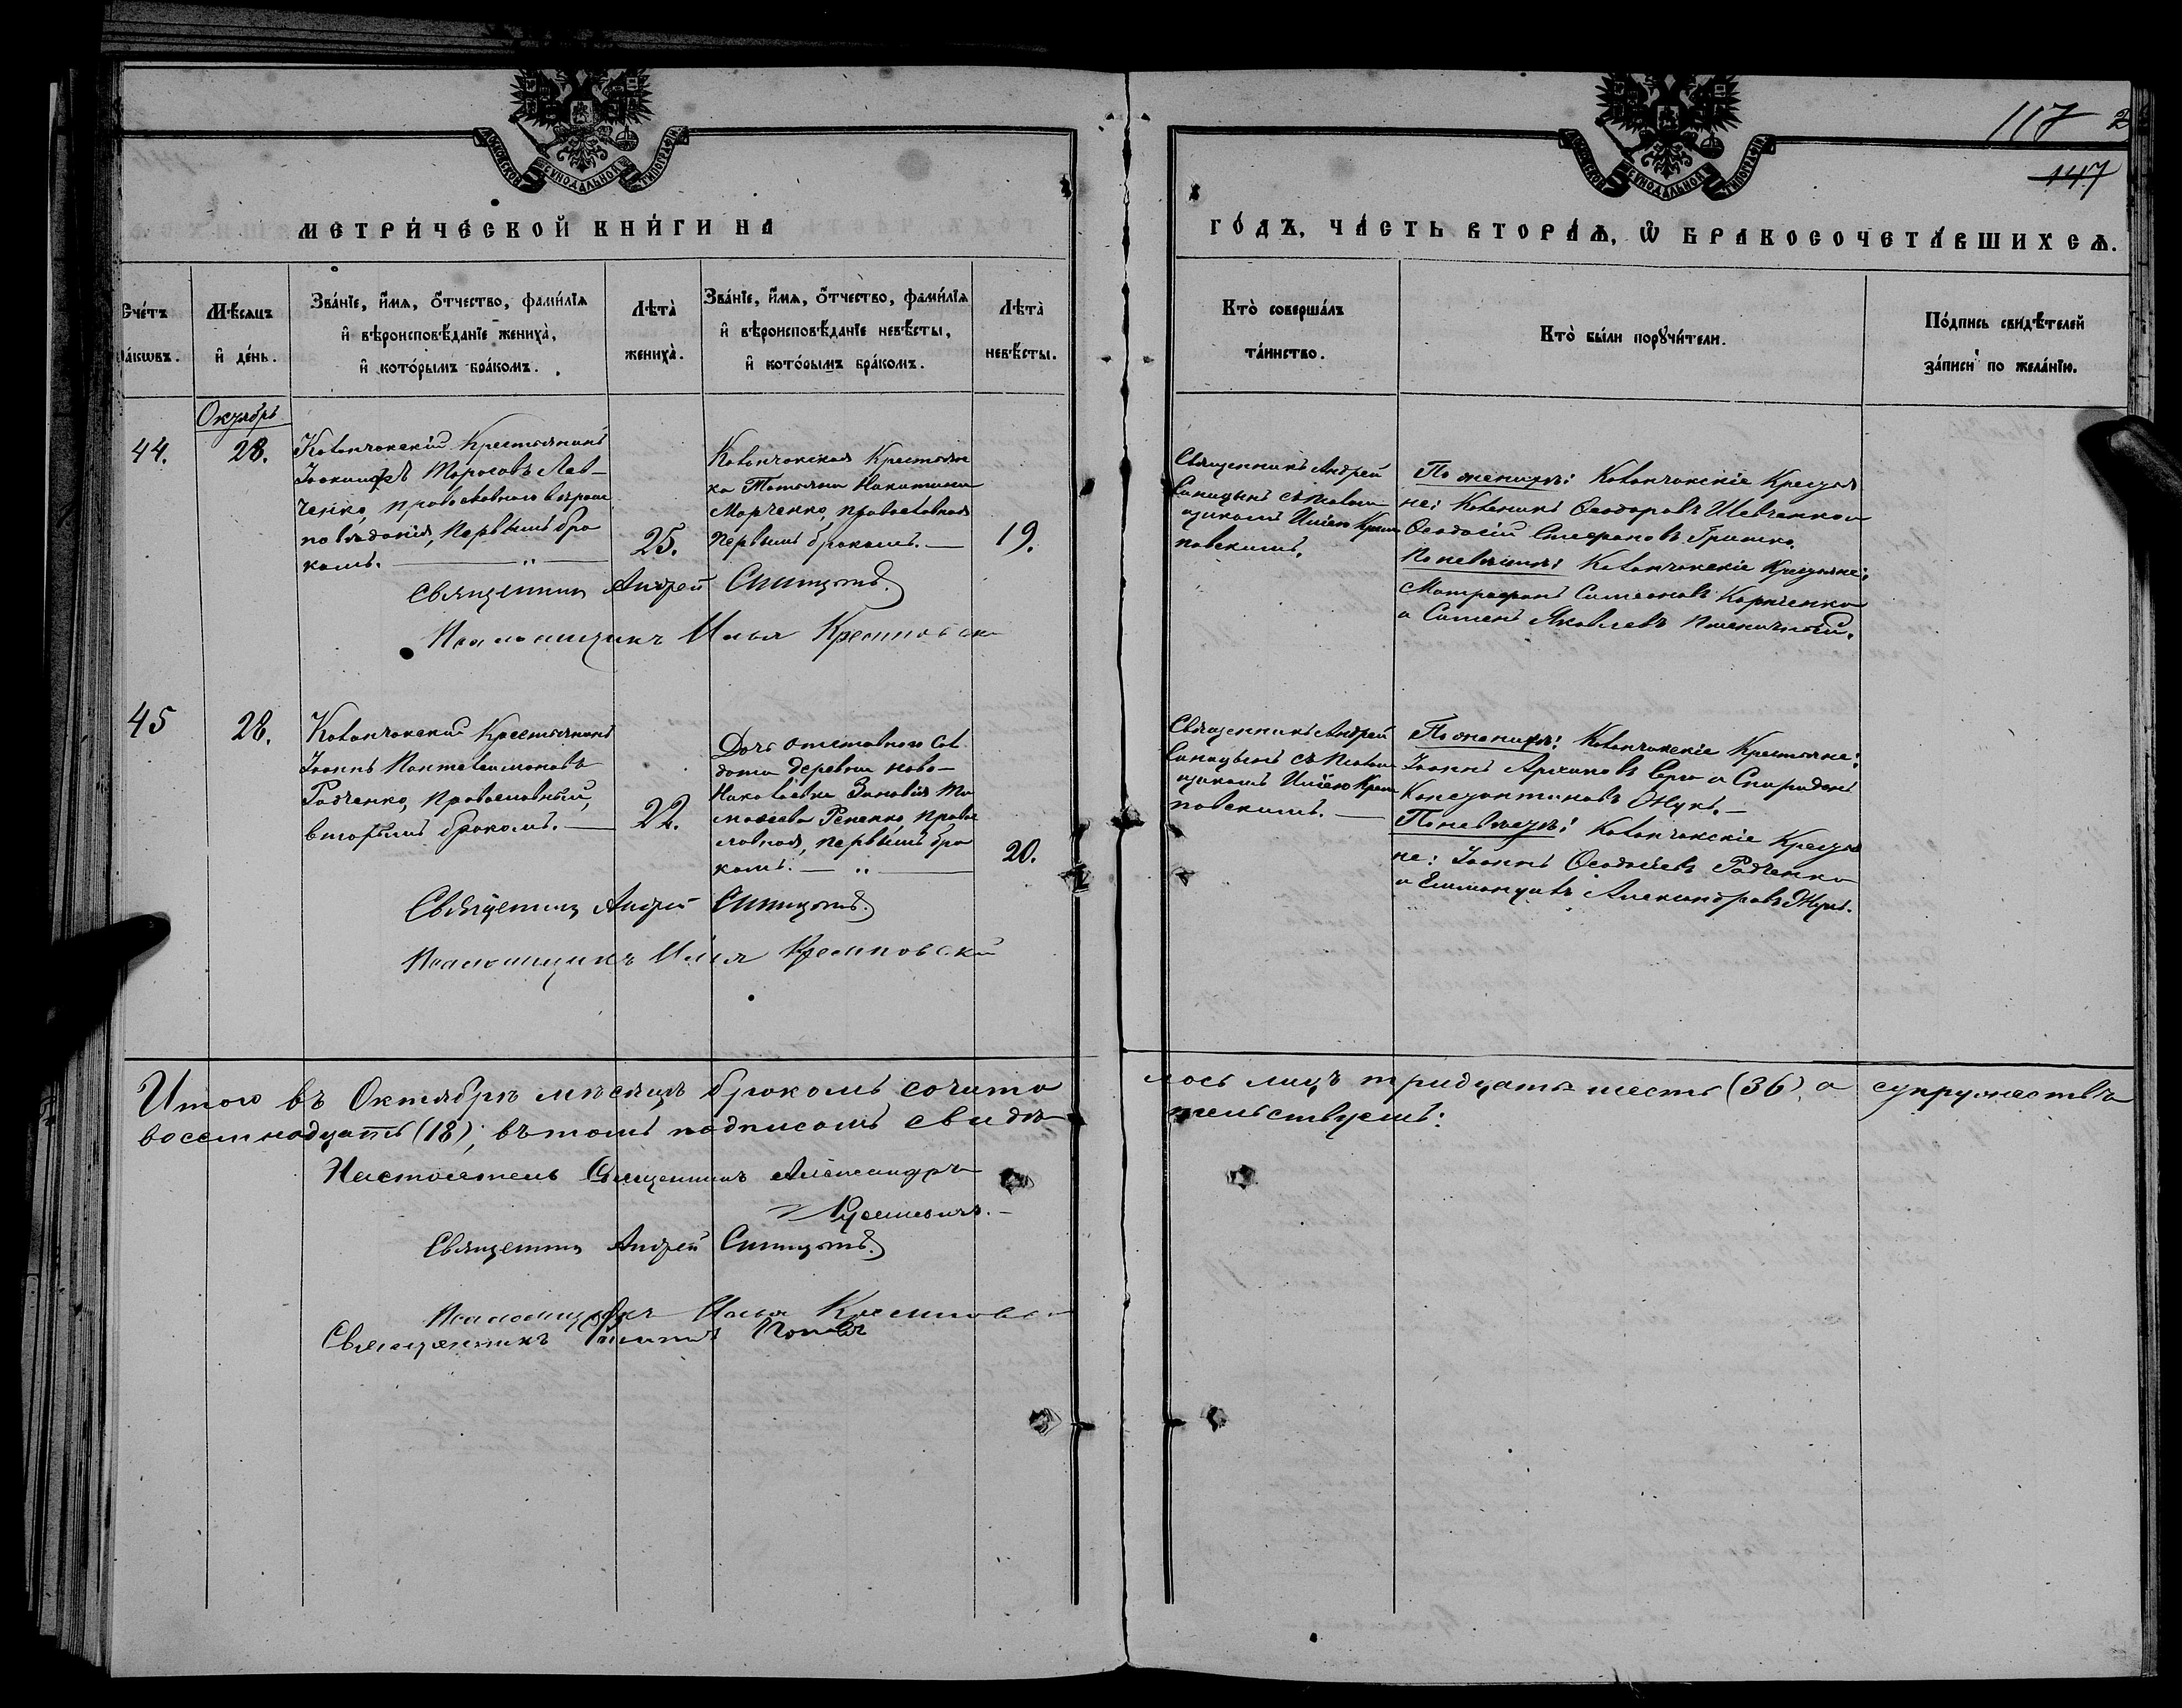 117 2
147
МОСКОВСКОЙ СѴНОДАЛЬНОЙ ТИПОГРАФІИ
МОСКОВСКОЙ СѴНОДАЛЬНОЙ ТИПОГРАФІИ
МЕТРИ́ЧЕСКОЙ КНИ́ГИ НА
ГО́ДЪ, ЧА́СТЬ ВТОРА́Ѧ, Ѡ҆ БРАКОСОЧЕТА́ВШИХСѦ.
Сче́тъ
ра́кѡвъ.
Мѣ́сѧцъ
и҆ де́нь.
Зва́нїе, и҆́мѧ, ѻ҆́тчество, фами́лїѧ
и҆ вѣроисповѣ́данїе жениха̀,
и҆ кото́рымъ бра́комъ.
Лѣта̀
жениха̀.
Зва́нїе, и҆́мѧ, ѻ҆́тчество, фами́лїѧ
и҆ вѣроисповѣ́данїе невѣ́сты,
и҆ кото́рымъ бра́комъ.
Лѣта̀
невѣ́сты.
Кто̀ соверша́лъ
та́инство.
Кто̀ бы́ли порꙋчи́тели.
По́дпись свидѣ́телей
за́писи по жела́нїю.
Октябрь
44.
28.
Каланчакскій Крестьянинъ
Іоакимъ Тарасовъ Лев-
ченко, православнаго вѣроис
повѣданія, первымъ бра
комъ. — „ —
25.
Каланчакская Крестьян
ка Татьяна Никитина
Марченко, православная
первымъ бракомъ. —
19.
Священникъ Андрей
Синицынъ съ псалом
щикомъ Иліею Кремп
повскимъ.
По женихѣ: Каланчакскіе Крестья
не: Каленикъ Ѳеодоровъ Шевченко и
Ѳеодосій Стефановъ Гришко.
По невѣстѣ: Каланчакскіе Крестьяне:
Митрофанъ Симеоновъ Корніенко
и Симеонъ Яковлевъ Пшеничный.
Священникъ Андрей Синицынъ
Псаломщикъ Илья
45
28.
Каланчакскій Крестьянинъ
Іоаннъ Пантелеимоновъ
Радченко, православный,
вторымъ бракомъ. —
22.
Дочь отставного сол
дата деревни Ново-
Николаевки Зиновія Ти
моѳеева Репенко, правос
лавная, первымъ бра
комъ. — „ —
20.
Священникъ Андрей
Синицынъ съ псалом
щикомъ Иліею Кремп
повскимъ. —
По женихѣ: Каланчакскіе Крестьяне:
Іоаннъ и Спиридонъ
Константиновъ Жукъ. —
По невѣстѣ: Каланчакскіе Крестья
не: Іоаннъ Ѳеодосіевъ Радченко
и Александровъ Жукъ.
Священникъ Андрей Синицынъ
Псаломщикъ Илья
Итого въ Октябрѣ мѣсяцѣ бракомъ сочета лось лицъ тридцать шесть (36), а супружествъ
восемнадцать (18); въ томъ подписомъ свидѣ тельствуемъ:
Настоятель Священникъ Александръ
Священникъ Андрей Синицынъ
Псаломщикъ Илья
Священникъ Поповъ